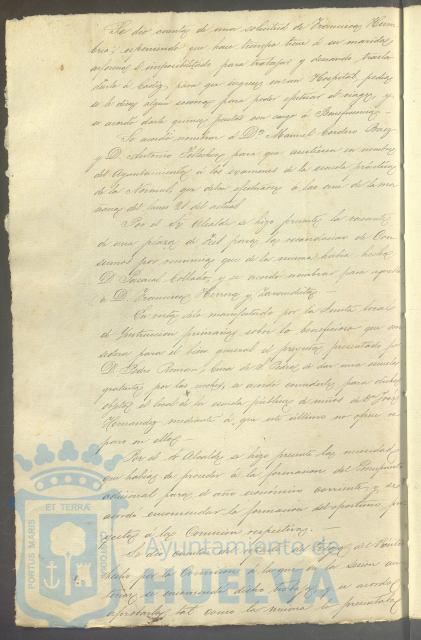 Se dió cuenta de una solicitud de Francisca Rum-
bria; esponiendo que hace tiempo tiene á su marido
enfermo é imposibilitado para trabajar y deseando trasla
darlo á Cadiz, para que ingrese en un Hospital, pedia
se le diera algun socorro para poder efectuar el viage, y
se acordó darle quince pesetas con cargo á Beneficencia.
Se acordó nombrar á D. Manuel Cordero Baez
y D. Antonio para que asistiesen en nombre
del Ayuntamiento á los examenes de la escuela práctica
de la Normal, que debe efectuarse á las once de la ma
ñana del lunes 21 del actual.
Por el Sr. Alcalde se hizo presente la vacante
de una plaza de Fiel para la recaudacion de Con
sumos por renuncia que de la misma habia hecho
D. Pascual Collado, y se acordó nombrar para aquella
á D. Francisco Herrera y
En vista de lo manifestado por la Junta local
de Instruccion primaria sobre lo beneficioso que con
sidera para el bien general el proyecto presentado por
D. Pedro Roman, Cura de S. Pedro, de dar una escuela
gratuita por las noches, se acordó concederle para dicho
objeto el local de la escuela pública de niños de D. José
Hernandez mediante á que este último no ofrece re
paro en ello.
Por el Sr. Alcalde se hizo presente la necesidad
que habia de proceder á la formacion del Presupuesto
adicional para el año económico corriente, y se
acordó encomendar la formacion del oportuno pro
yecto á la Comision respectiva.
hecho por la Comision á la que en la sesion an
terior se encomendó dicho trabajo, y se acordó
aprobarlo tal como la misma lo presentaba
PORTUS MARIS
ET TERRAE
CUSTODIA
Ayuntamiento de
HUELVA